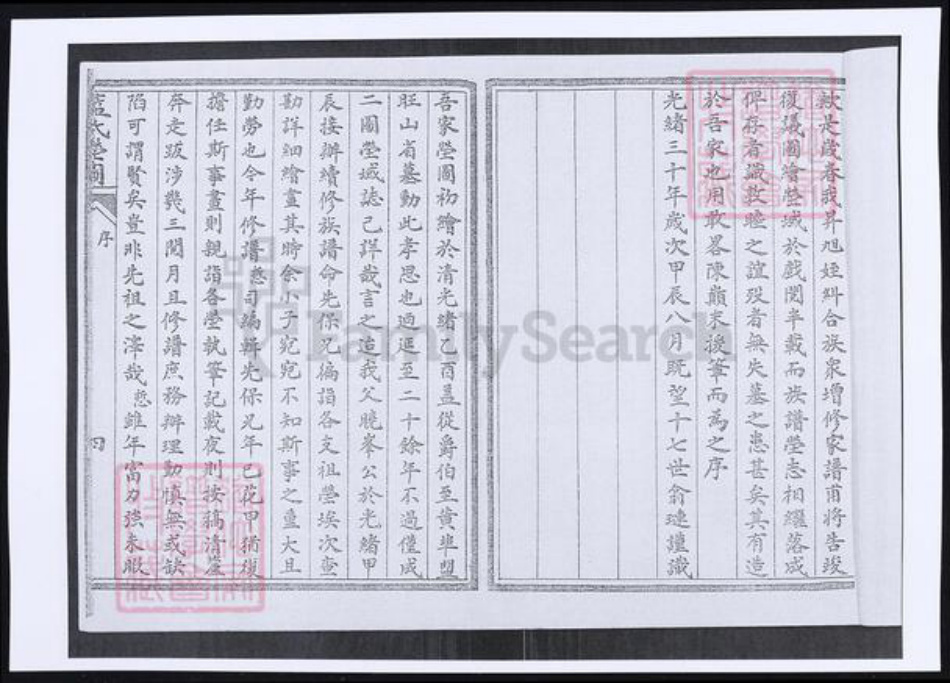 歟是歲春我昇旭姪糾合族眾增修家譜甫將告竣
復議圖繪塋域於戲閱半載而族譜塋志相繼落成
俾存者識敦睦之誼歿者無失墓之患甚矣其有造
於吾家也用敢畧陳巔末後筆而為之序
光緒三十年歲次甲辰八月既望十七世俞璉謹識
吾家塋圖初繪於清光緒乙酉蓋從爵伯至黃埠盟
旺山省墓動此孝思也迺延至二十餘年不過僅成
二圖塋域誌已詳哉言之造我父曉峯公於光緒甲
辰接辦續修族譜命先保兄徧詣各支祖塋埃次查
勘詳細繪畫其時余小子宛宛不知斯事之重大且
勤勞也今年修譜慇司編輯先保兄年已花甲猶復
擔任斯事晝則親詣各塋執筆記載夜則按稿清釐
奔走跋涉幾三閱月且修譜庶務辦理勤慎無或缺
陷可謂賢矣豈非先祖之澤哉慇雖年富力強未暇
藍氏塋圖
序
四
FamilySearch